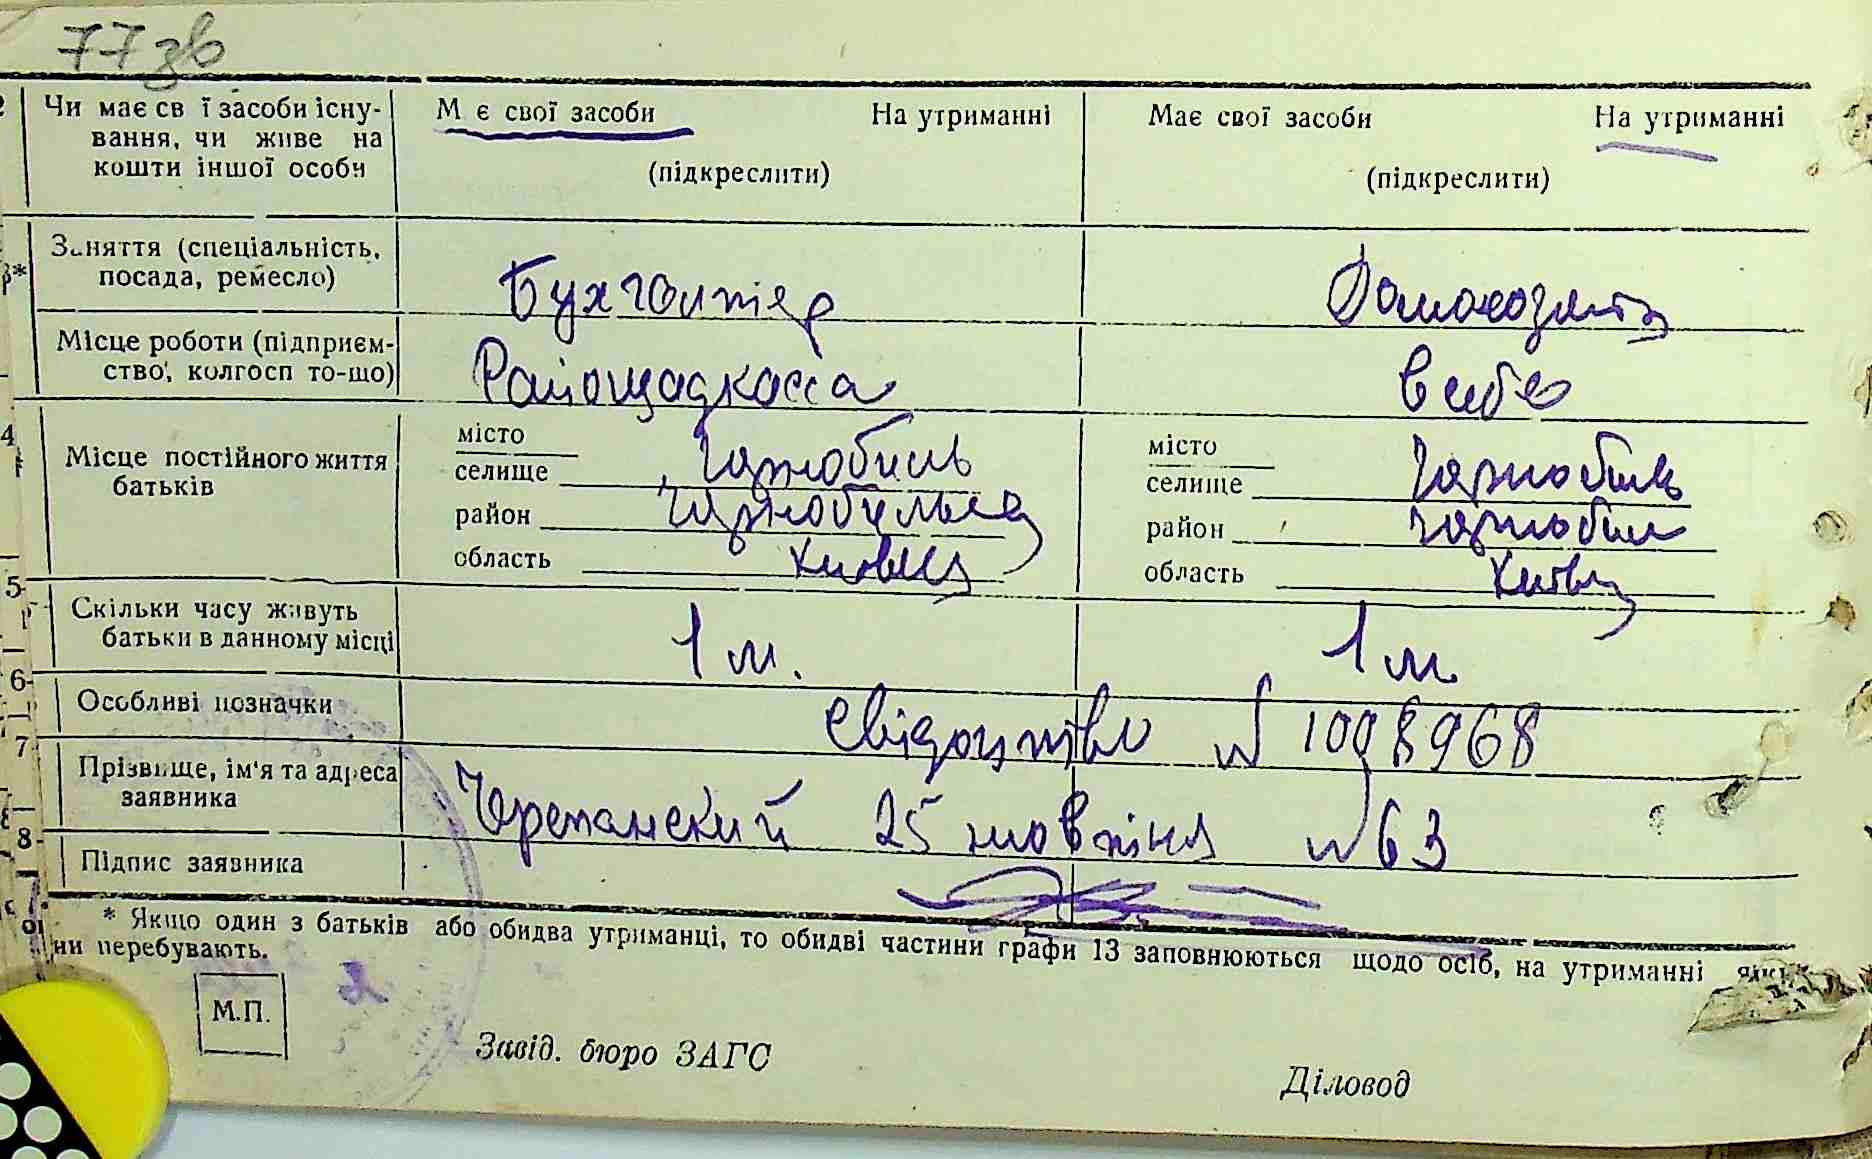 77 зв
Чи має св ї засоби існу-
вання, чи живе на
кошти іншої особи
М є свої засоби На утриманні
(підкреслити)
Має свої засоби На утриманні
(підкреслити)
Заняття (спеціальність,
посада, ремесло)
Бухгалтер
Домохозяйка
Місце роботи (підприєм-
ство, колгосп то-що)
Райощадкасса
в себе
4
Місце постійного життя
батьків
місто
селище Чорнобиль
район Чорнобильськ
область Київськ
місто
селище Чорнобиль
район Чорнобил
область Київськ
5-
Скільки часу живуть
батьки в данному місці
1 м.
1 м.
6-
Особливі позначки
Свідоцтво № 1098968
7-
Прізвище, ім'я та адреса
заявника
Черепанский 25 жовтня № 63
8-
Підпис заявника
* Якщо один з батьків або обидва утриманці, то обидві частини графи 13 заповнюються щодо осіб, на утриманні яких
ни перебувають.
М.П.
Завід. бюро ЗАГС
Діловод